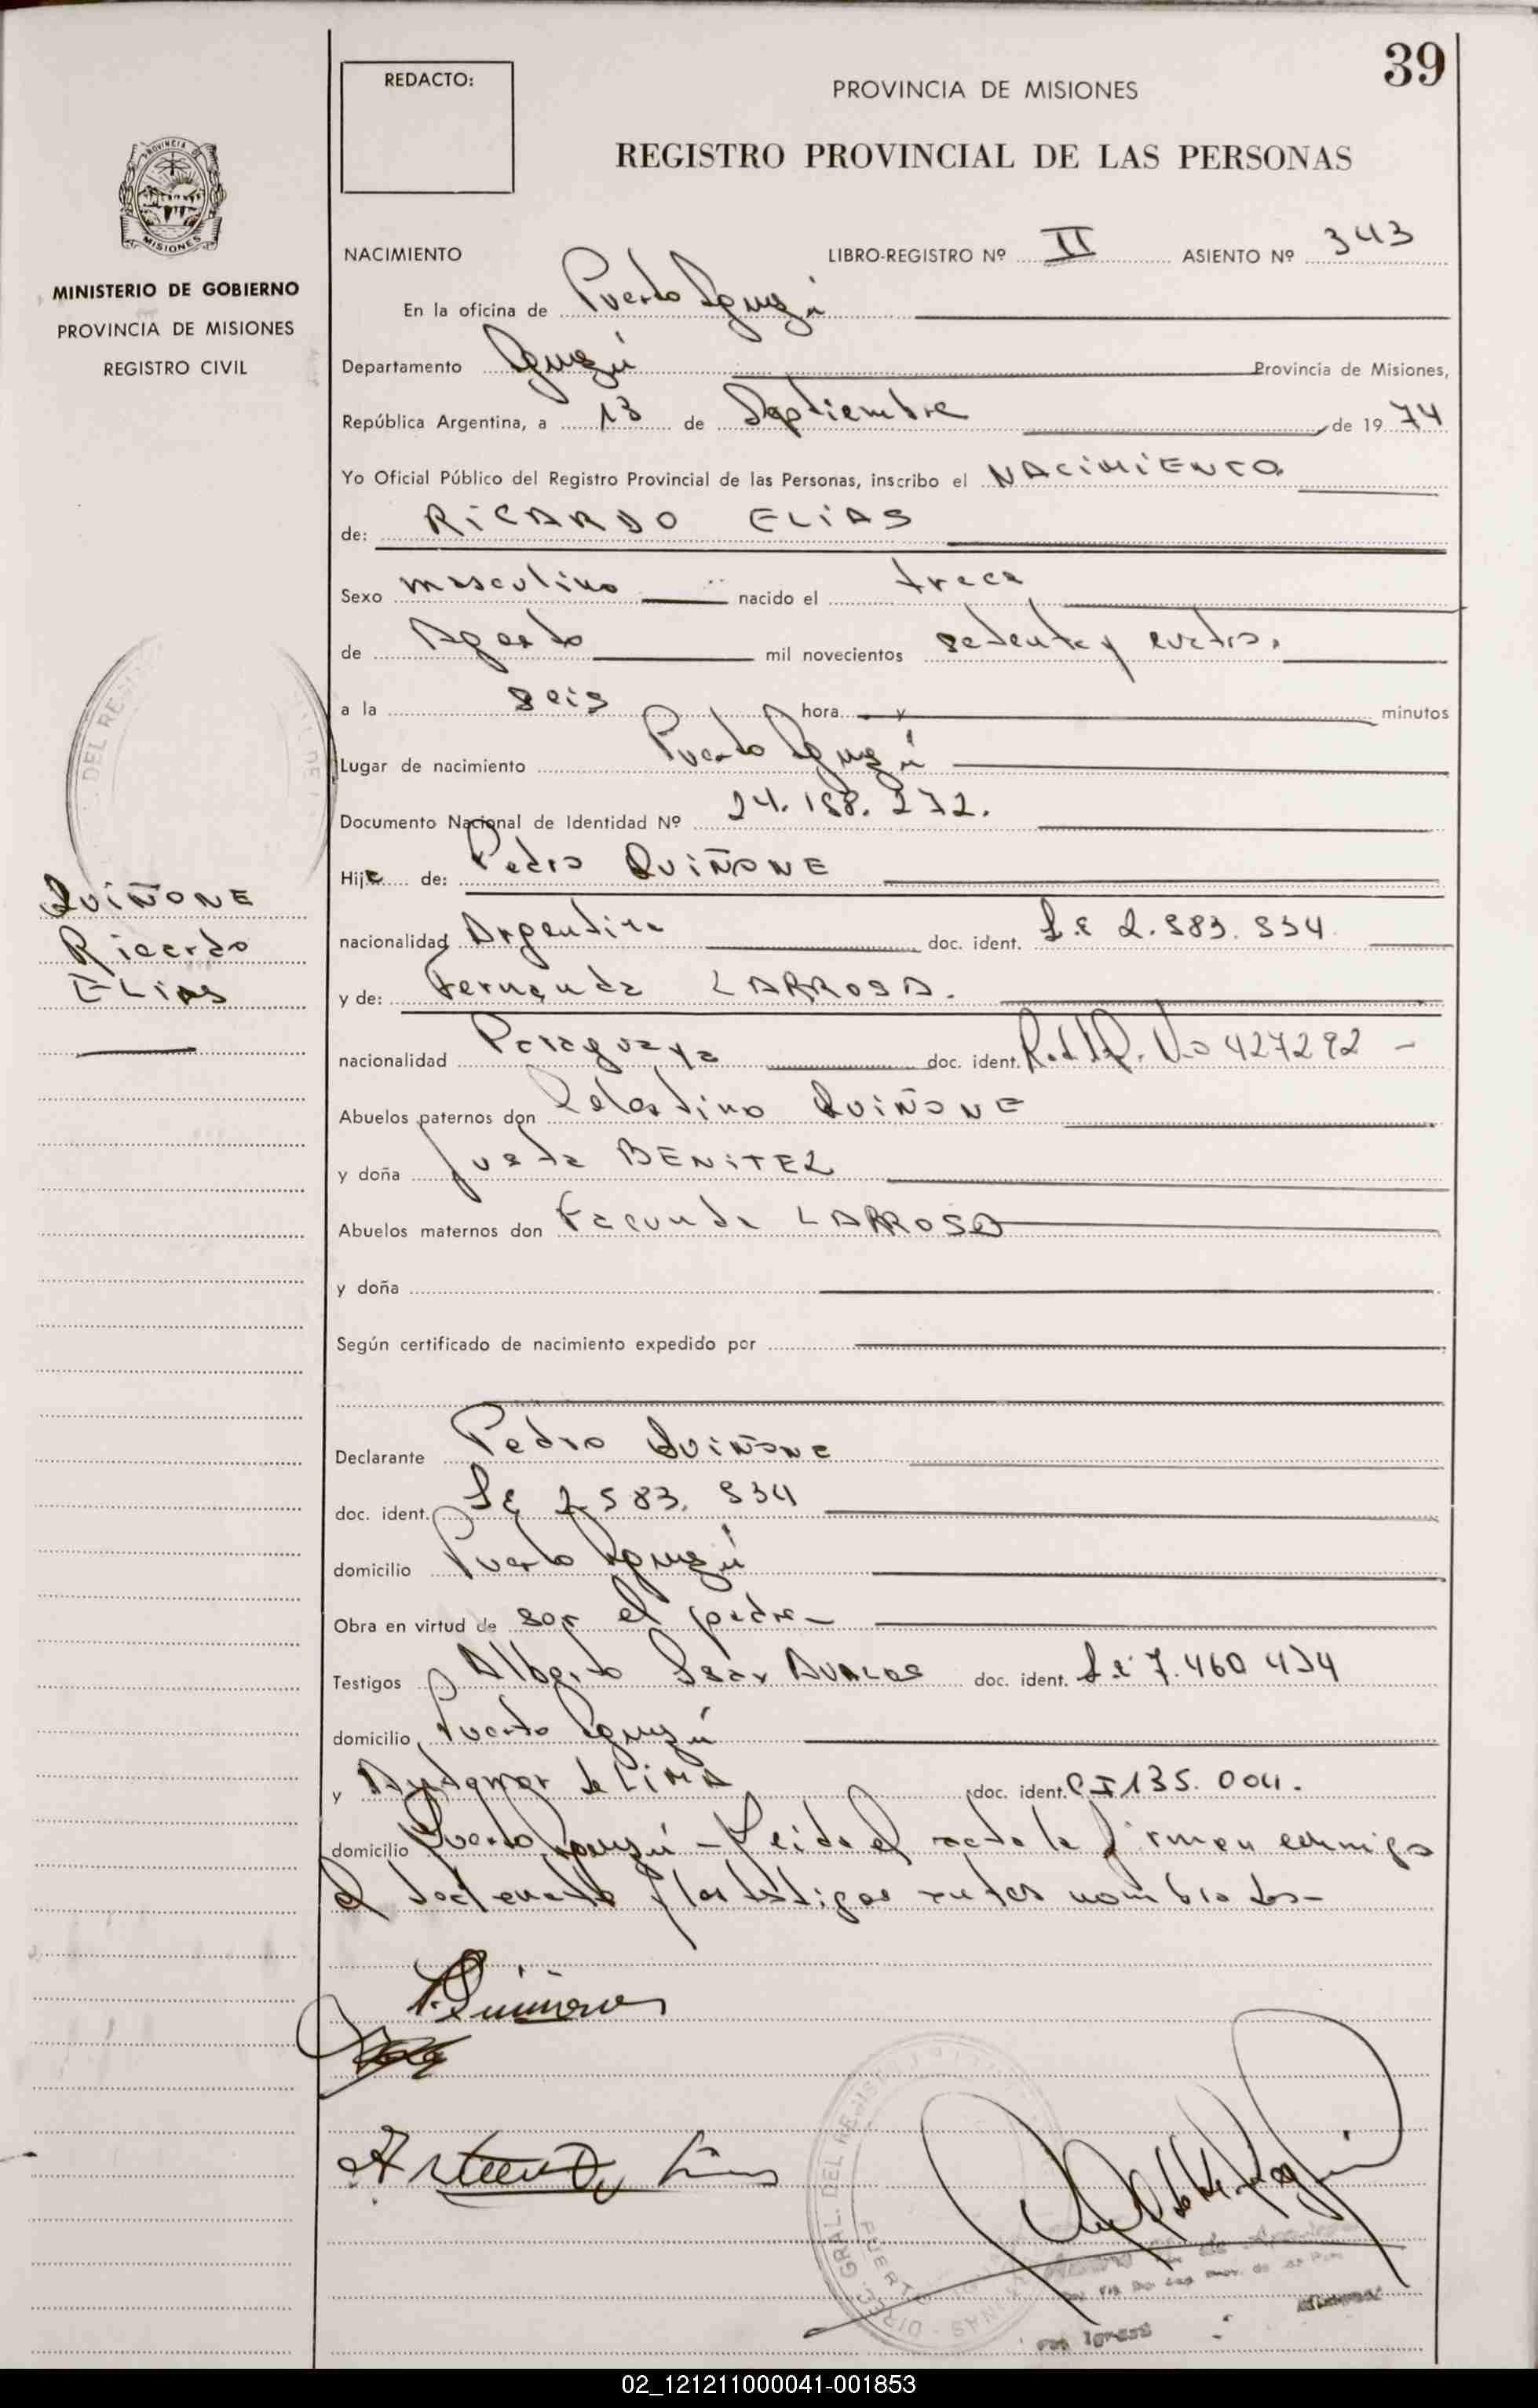 39
REDACTO:
PROVINCIA DE MISIONES
REGISTRO PROVINCIAL DE LAS PERSONAS
PROVINCIA DE
MISIONES
MINISTERIO DE GOBIERNO
PROVINCIA DE MISIONES
REGISTRO CIVIL
NACIMIENTO LIBRO-REGISTRO Nº II ASIENTO Nº 343
En la oficina de Puerto Iguazú
Departamento Iguazú Provincia de Misiones,
República Argentina, a 13 de Septiembre de 1974
Yo Oficial Público del Registro Provincial de las Personas, inscribo el NACIMIENTO
de: RICARDO ELIAS
Sexo masculino nacido el trece
de Agosto mil novecientos setenta y cuatro.
a la seis hora y minutos
Lugar de nacimiento Puerto Iguazú
Documento Nacional de Identidad Nº 24.188.272.
Hijo de: Pedro QUIÑONE
QUIÑONE
Ricardo
ELIAS
nacionalidad Argentina doc. ident. L.E 2.583.534
y de: Fernanda LARROSA.
nacionalidad Paraguaya doc. ident. No 427292 -
Abuelos paternos don Celestino QUIÑONE
y doña Justa BENITEZ
Abuelos maternos don Facunda LARROSA
y doña
Según certificado de nacimiento expedido por
Declarante Pedro QUIÑONE
doc. ident. LE 2.583.534
domicilio Puerto Iguazú
Obra en virtud de ser el padre -
Testigos Alberto AVALOS doc. ident. L.E 7.460 434
domicilio Puerto Iguazú
y de LIMA doc. ident. CI 135.004.
domicilio Puerto Iguazú - Leida el acta la firman conmigo
el declarante y los testigos antes nombrados -
DEL REGIS
DIREC. GRAL. DEL REGIST
PUERTO
02_121211000041-001853